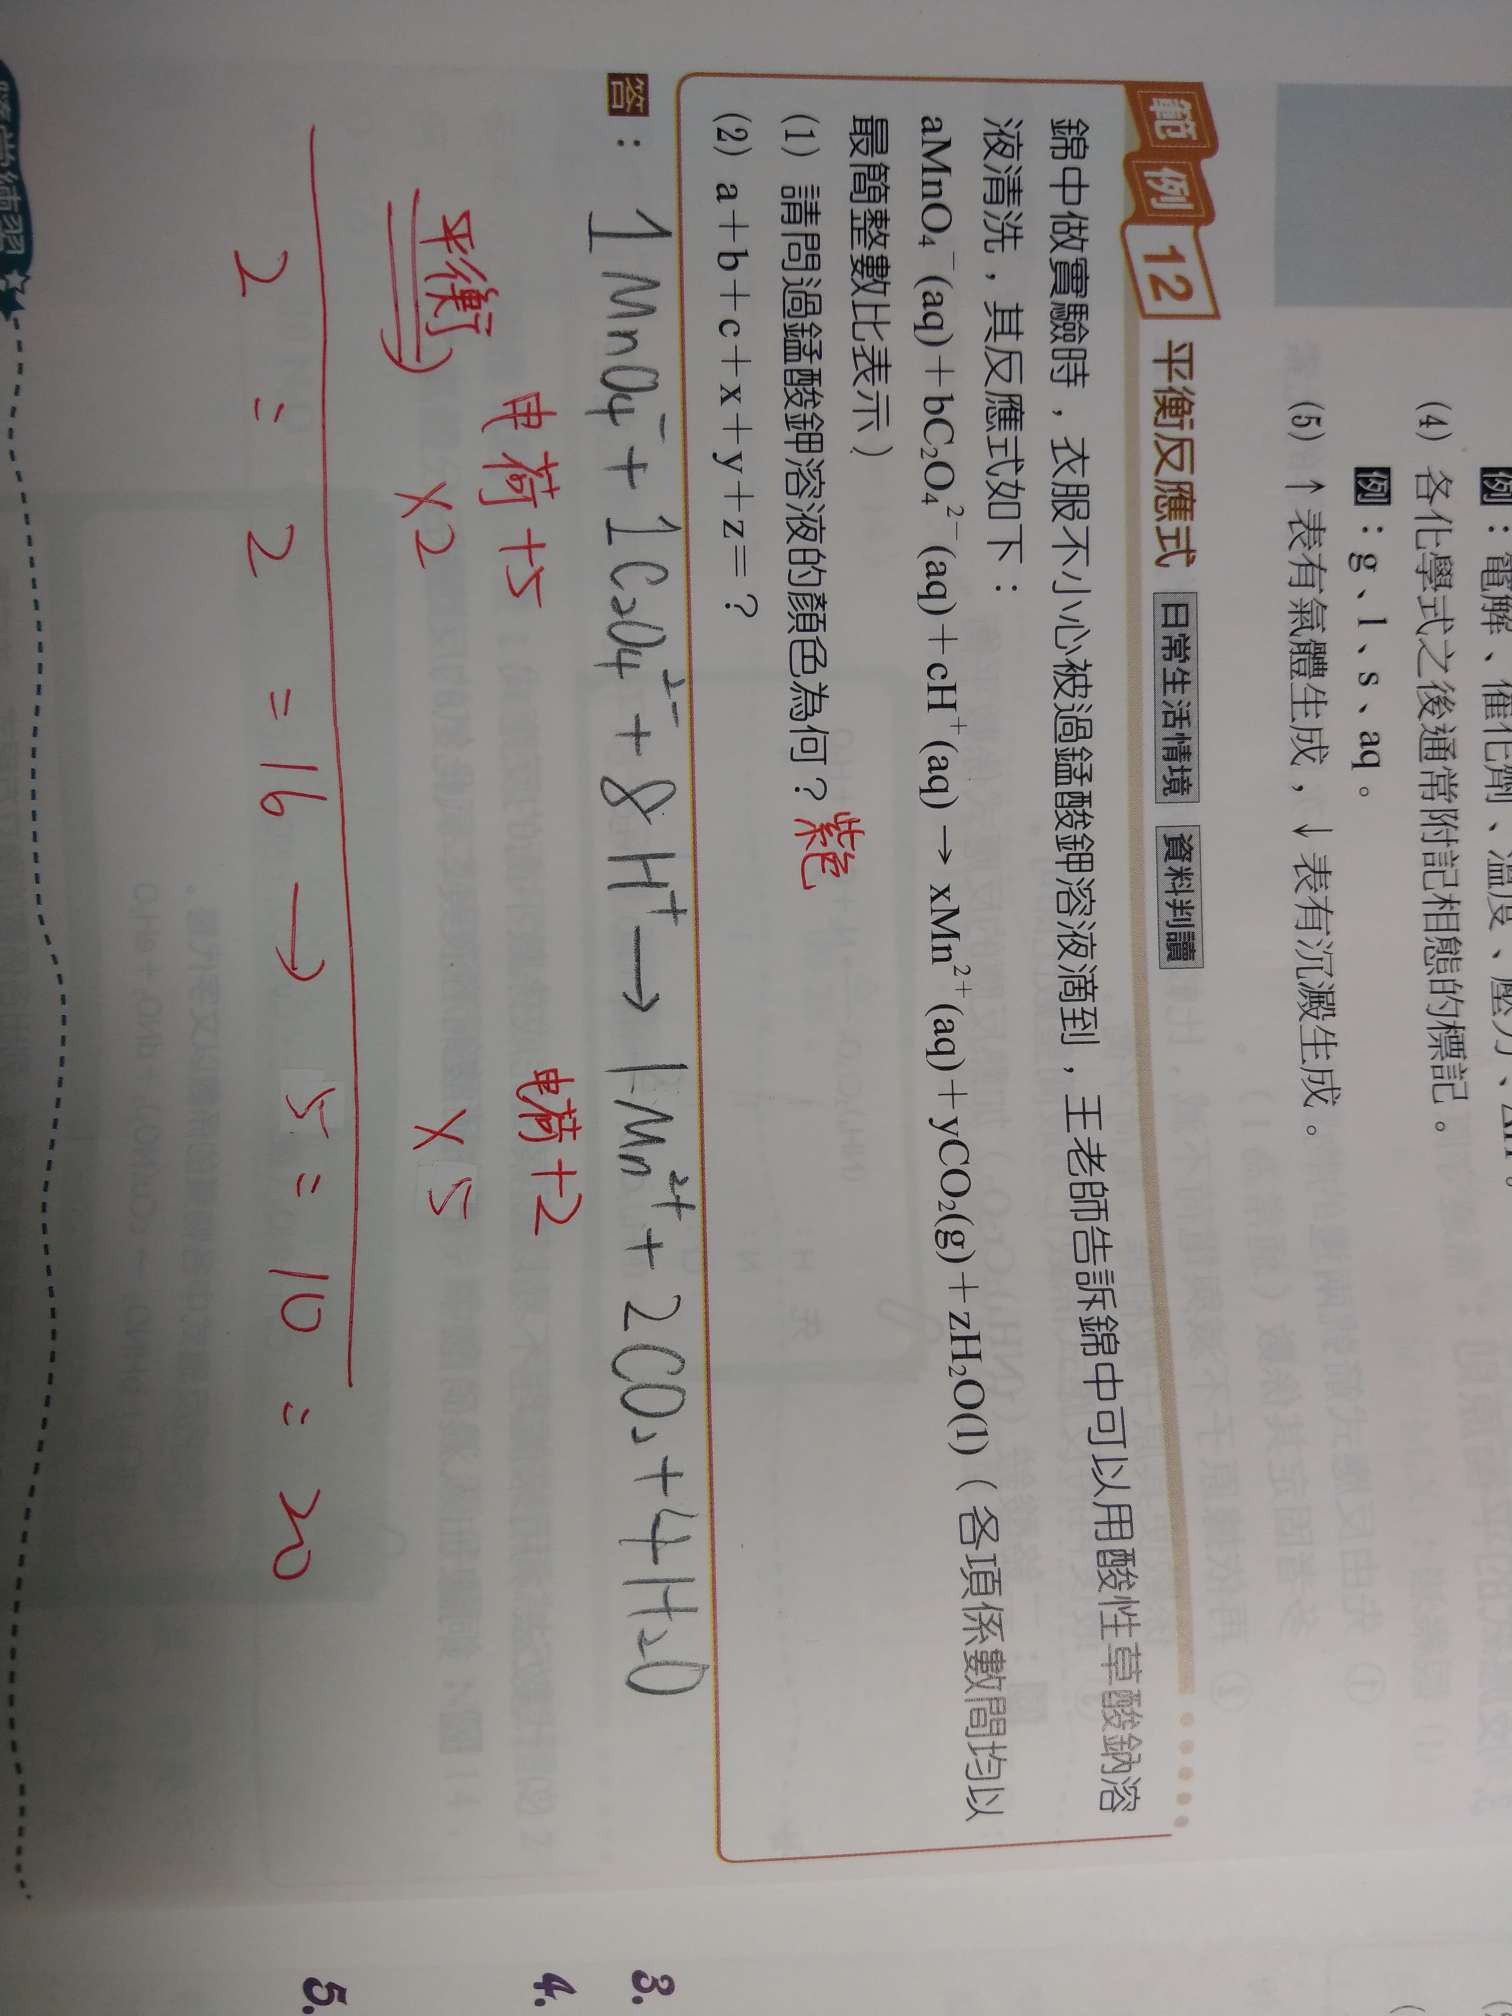 例：電解、催化劑、溫度、壓力、
(4) 各化學式之後通常附記相態的標記。
例：g、l、s、aq。
(5) ↑表有氣體生成，↓表有沉澱生成。
範例 12 平衡反應式 日常生活情境 資料判讀
錦中做實驗時，衣服不小心被過錳酸鉀溶液滴到，王老師告訴錦中可以用酸性草酸鈉溶
液清洗，其反應式如下：
aMnO₄⁻(aq)＋bC₂O₄²⁻(aq)＋cH⁺(aq) → xMn²⁺(aq)＋yCO₂(g)＋zH₂O(l)（各項係數間均以
最簡整數比表示）
(1) 請問過錳酸鉀溶液的顏色為何？紫色
(2) a＋b＋c＋x＋y＋z＝？
答：
1MnO₄⁻ + 1C₂O₄²⁻ + 8H⁺ → 1Mn²⁺ + 2CO₂ + 4H₂O
电荷+5 电荷+2
平衡 ×2 ×5
2 = 2 = 16 → 5 = 10 = 20
隨堂練習
3.
4.
5.